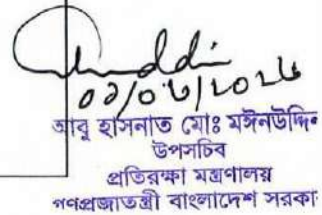 আবু হাসনাত মোঃ মঈনউদ্দিন
উপসচিব
প্রতিরক্ষা মন্ত্রণালয়
গণপ্রজাতন্ত্রী বাংলাদেশ সরকা